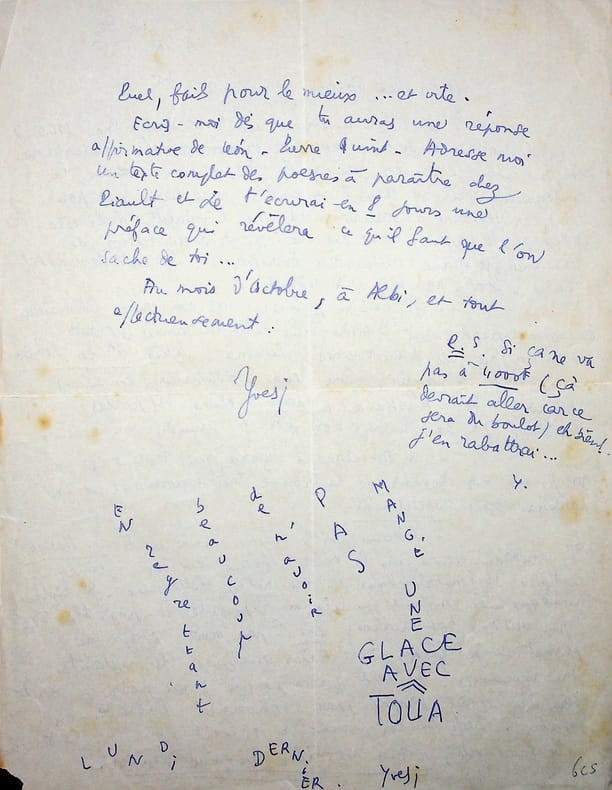 fais pour le mieux ... et vite.
Ecris-moi dès que tu auras une réponse
affirmative de Léon-Pierre Quint. Adresse moi
un texte complet des poesies à paraître chez
et Je t'ecrirai en 8 Jours une
préface qui révèlera ce qu'il faut que l'on
sache de toi ...
Au mois d'Octobre, à Albi, et tout
affectueusement :
Yves
P.S. Si ça ne va
pas à 4000f (çà
devrait aller car ce
sera du boulot) eh bien!
j'en rabattrai ...
Y.
EN regrettant
beaucoup
de n'avoir
PAS
MANGé UNE
GLACE
AVEC
TOUA
LUNDi DERNiER. Yves
6C5